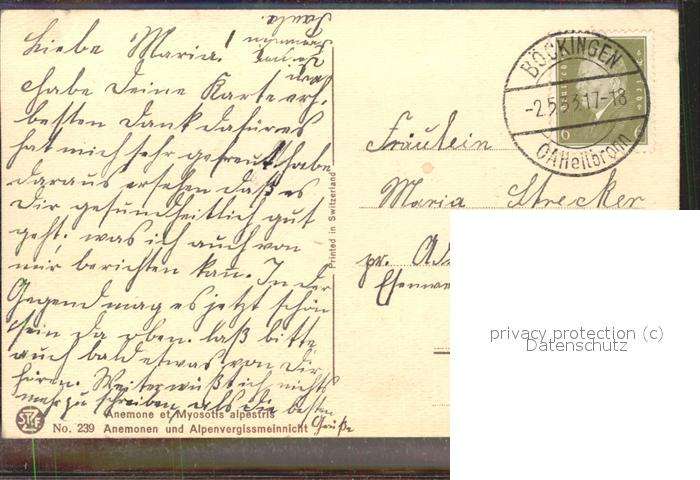 Liebe Maria!
habe Deine Karte erh.
besten Dank dafür es
hat mich sehr gefreut habe
daraus ersehen daß es
Dir gesundheitlich gut
geht, was ich auch von
mir berichten kan. In der
Gegend mag es jetzt schön
sein da oben. laß bitte
auch bald etwas von Dir
hören. Weiter wüßt ich nichts
mehr zu schreiben als die besten
Grüße
Paula.
Anemone et Myosotis alpestris
No. 239 Anemonen und Alpenvergissmeinnicht
Printed in Switzerland
BÖCKINGEN
-2.5. 3.17-18
OA Heilbronn
Fräulein
Maria Strecker
pr.
privacy protection (c)
Datenschutz